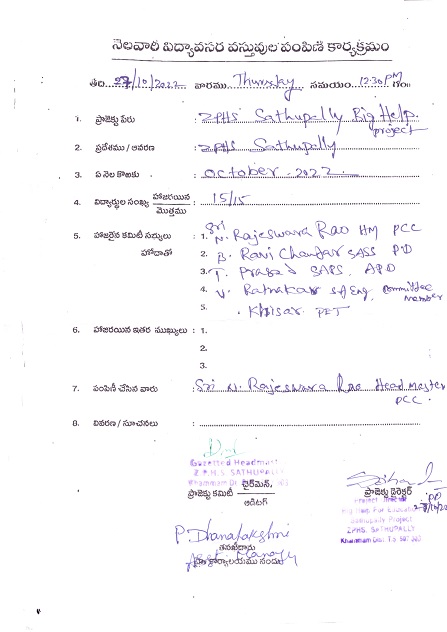 నెలవారీ విద్యావసర వస్తువుల పంపిణీ కార్యక్రమం
తేది 27/10/2022 వారము Thursday సమయం 12:30 PM గం॥
1. ప్రాజెక్టు పేరు : ZPHS Sathupally Big Help. project
2. ప్రదేశము / ఆవరణ : ZPHS Sathupally
3. ఏ నెల కొఱకు : October - 2022
4. విద్యార్థుల సంఖ్య హాజరయిన / మొత్తము : 15/15
5. హాజరైన కమిటీ సభ్యులు : 1. Sri N. Rajeswara Rao HM PCC
హోదాతో 2. B. Ravi Chander SASS PD
3. T. Prasad SAPS, APD
4. V. Ratnakar SA Eng, Committee Member
5. Khisar PET
6. హాజరయిన ఇతర ముఖ్యులు : 1.
2.
3.
7. పంపిణీ చేసిన వారు : Sri N. Rajeswara Rao Head Master PCC.
8. వివరణ / సూచనలు :
Gazetted Headmast
Z.P.H.S. SATHUPALLY
Khammam Dt. చైర్‌మన్,
ప్రాజెక్టు కమిటీ
ఆడిటర్
ప్రాజెక్టు డైరెక్టర్ PD
Project Director
Big Help For Education
Sathupally Project
ZPHS. SATHUPALLY
Khammam Dist. T.S 507 303
P Dhanalakshmi
తనిఖీదారు
కార్యాలయము నందు